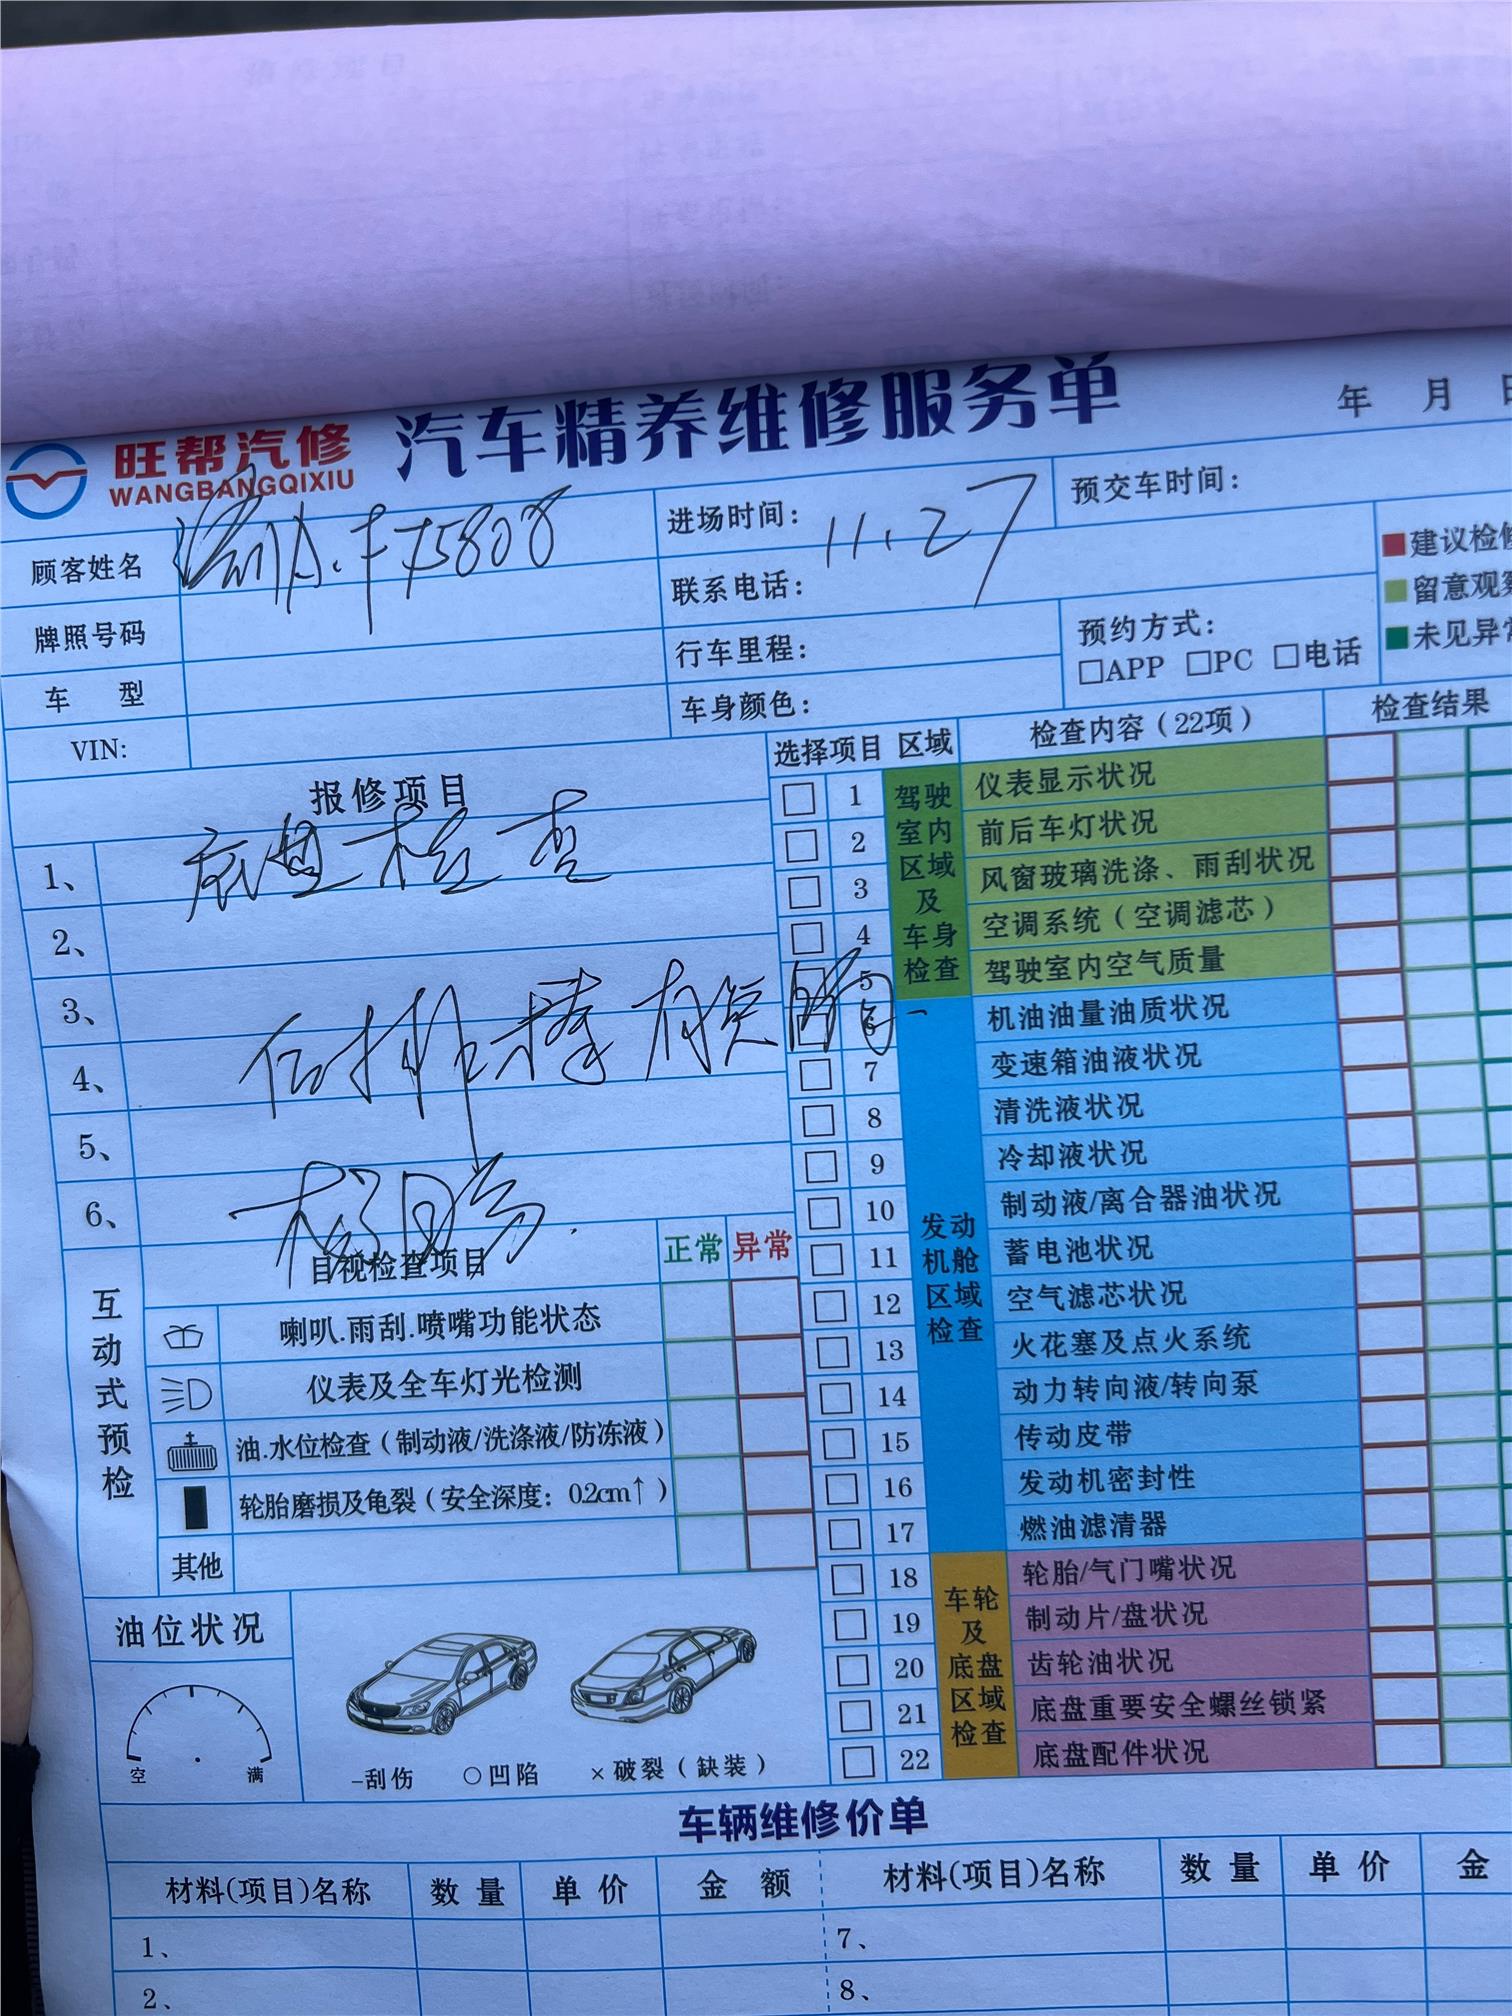 汽车精养维修服务单
年 月
旺帮汽修
WANGBANGQIXIU
顾客姓名
A·F75808
进场时间: 11.27
预交车时间:
联系电话:
牌照号码
行车里程:
预约方式:
□APP □PC □电话
建议检修
留意观察
未见异常
车 型
车身颜色:
VIN:
报修项目
选择项目 区域 检查内容（22项） 检查结果
1、底盘检查
2、
3、
4、
5、
6、
驾驶室内区域及车身检查
1 仪表显示状况
2 前后车灯状况
3 风窗玻璃洗涤、雨刮状况
4 空调系统（空调滤芯）
5 驾驶室内空气质量
发动机舱区域检查
6 机油油量油质状况
7 变速箱油液状况
8 清洗液状况
9 冷却液状况
10 制动液/离合器油状况
11 蓄电池状况
12 空气滤芯状况
13 火花塞及点火系统
14 动力转向液/转向泵
15 传动皮带
16 发动机密封性
17 燃油滤清器
车轮及底盘区域检查
18 轮胎/气门嘴状况
19 制动片/盘状况
20 齿轮油状况
21 底盘重要安全螺丝锁紧
22 底盘配件状况
互动式预检
目视检查项目 正常 异常
喇叭.雨刮.喷嘴功能状态
仪表及全车灯光检测
油.水位检查（制动液/洗涤液/防冻液）
轮胎磨损及龟裂（安全深度: 0.2cm↑）
其他
油位状况
空 满
-刮伤 ○凹陷 ×破裂（缺装）
车辆维修价单
材料(项目)名称 数量 单价 金额 材料(项目)名称 数量 单价 金
1、 7、
2、 8、